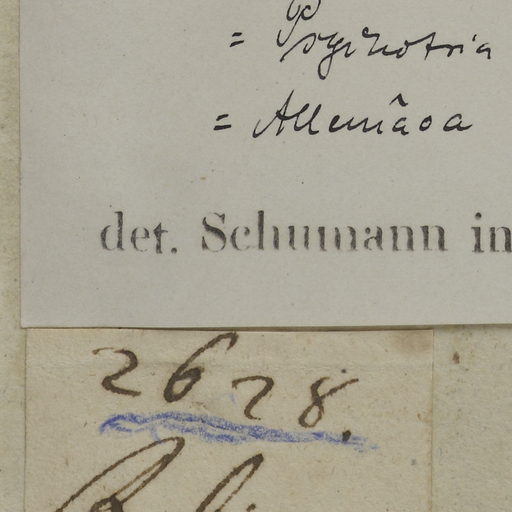 = Psychotria
= Allemâoa
det. Schumann in
2628.